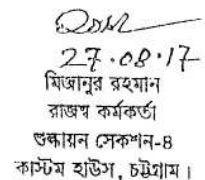 27.08.17
মিজানুর রহমান
রাজস্ব কর্মকর্তা
শুল্কায়ন সেকশন-৪
কাস্টম হাউস, চট্টগ্রাম।